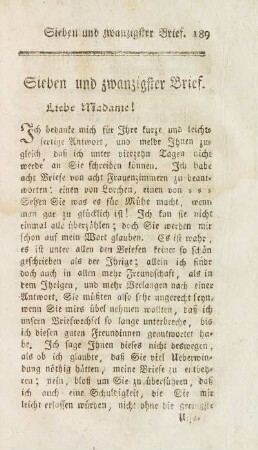 Sieben und zwanzigster Brief. 189
Sieben und zwanzigster Brief.
Liebe Madame!
Ich bedanke mich für Ihre kurze und leicht-
fertige Antwort, und melde Ihnen zu-
gleich, daß ich unter vierzehn Tagen nicht
werde an Sie schreiben können. Ich habe
acht Briefe von acht Frauenzimmern zu beant-
worten; einen von Lorchen, einen von - - -
Sehen Sie was es für Mühe macht, wenn
man gar zu glücklich ist! Ich kan sie nicht
einmal alle überzählen; doch Sie werden mir
schon auf mein Wort glauben. Es ist wahr,
es ist unter allen den Briefen keiner so schön
geschrieben als der Ihrige; allein ich find
doch auch in allen mehr Freundschaft, als in
dem Ihrigen, und mehr Verlangen nach einer
Antwort. Sie müßten also sehr ungerecht seyn,
wenn Sie mirs übel nehmen wollten, daß ich
unsern Briefwechsel so lange unterbreche, bis
ich diesen guten Freundinnen geantwortet ha-
be. Ich sage Ihnen dieses nicht deswegen,
als ob ich glaubte, daß Sie viel Ueberwin-
dung nöthig hätten, meine Briefe zu entbeh-
ren; nein, bloß um Sie zu überführen, daß
ich auch eine Schuldigkeit, die Sie mir
leicht erlassen würden, nicht ohne die geringste